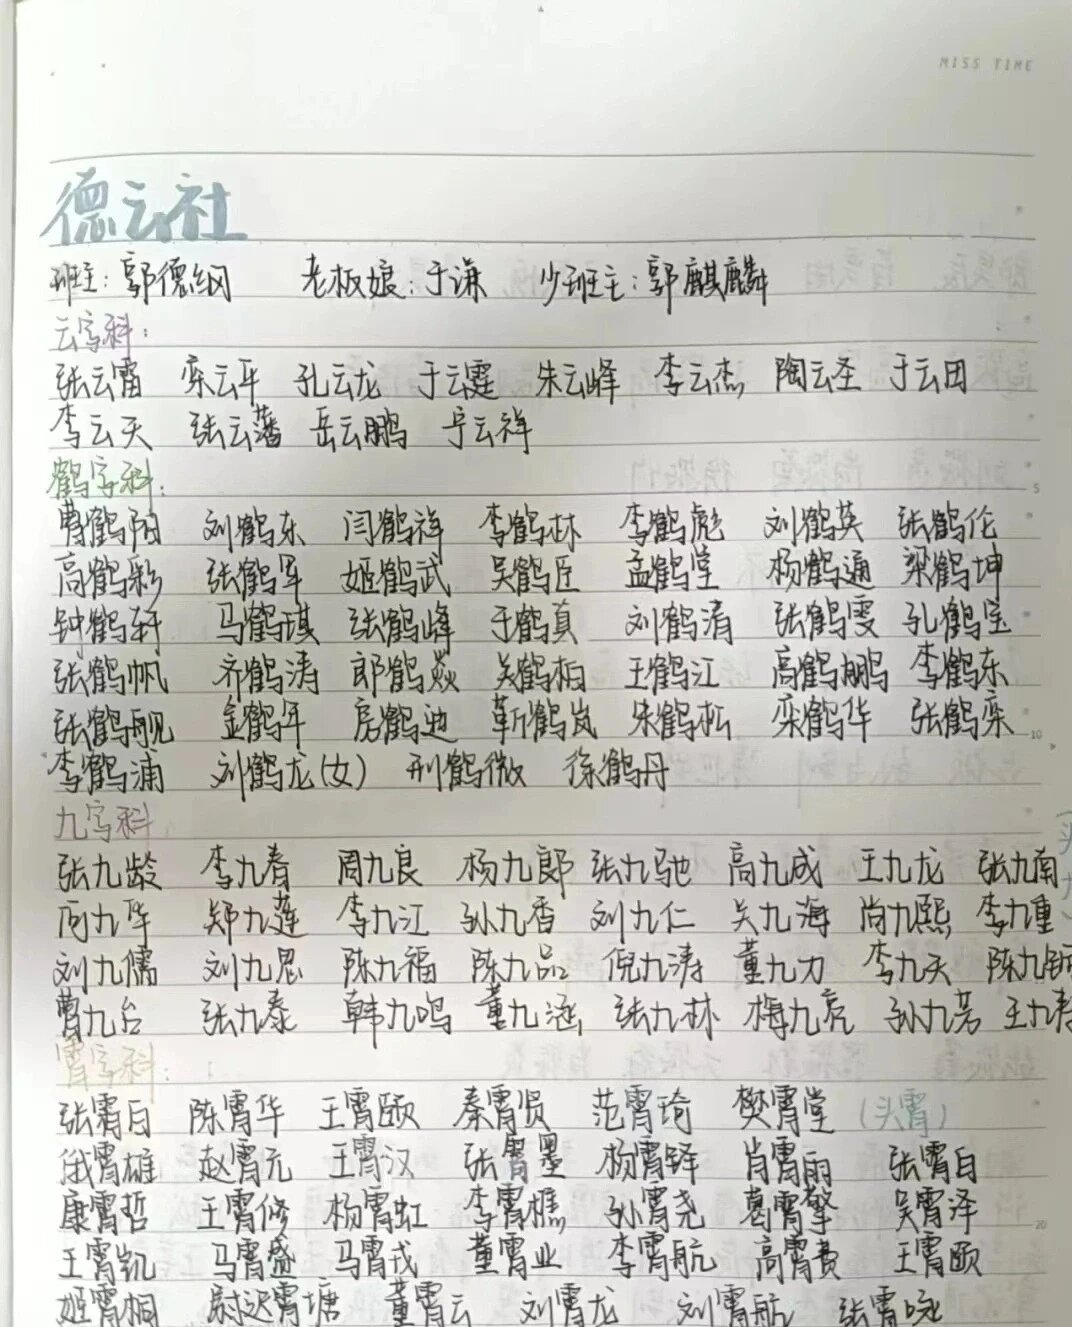 MISS TIME
德云社
班主：郭德纲 老板娘：于谦 少班主：郭麒麟
云字科：
张云雷 栾云平 孔云龙 于云霆 朱云峰 李云杰 陶云圣 于云团
李云天 张云藩 岳云鹏 宁云祥
鹤字科：
曹鹤阳 刘鹤东 闫鹤祥 李鹤林 李鹤彪 刘鹤英 张鹤伦
高鹤彩 张鹤军 姬鹤武 吴鹤臣 孟鹤堂 杨鹤通 梁鹤坤
钟鹤轩 马鹤琪 张鹤峰 于鹤真 刘鹤清 张鹤雯 孔鹤宝
张鹤帆 齐鹤涛 郎鹤焱 吴鹤柏 王鹤江 高鹤鹏 李鹤东
张鹤舰 金鹤年 房鹤迪 靳鹤岚 朱鹤松 栾鹤华 张鹤栾
李鹤浦 刘鹤龙(女) 刑鹤微 徐鹤丹
九字科
张九龄 李九春 周九良 杨九郎 张九驰 高九成 王九龙 张九南
何九华 郑九莲 李九江 孙九香 刘九仁 关九海 尚九熙 李九重
刘九儒 刘九思 陈九福 陈九品 倪九涛 董九力 李九天 陈九
曹九台 张九泰 韩九鸣 董九涵 张九林 梅九亮 孙九芳 王九
霄字科：
张霄白 陈霄华 王霄颐 秦霄贤 范霄琦 樊霄堂 (头霄)
俄霄雄 赵霄元 王霄汉 张霄墨 杨霄铎 肖霄雨 张霄白
康霄哲 王霄修 杨霄虹 李霄樵 孙霄尧 葛霄擎 吴霄泽
王霄凯 马霄盛 马霄戎 董霄业 李霄航 高霄费 王霄颐
姬霄桐 尉迟霄塘 董霄云 刘霄龙 刘霄航 张霄咏
5
10
20